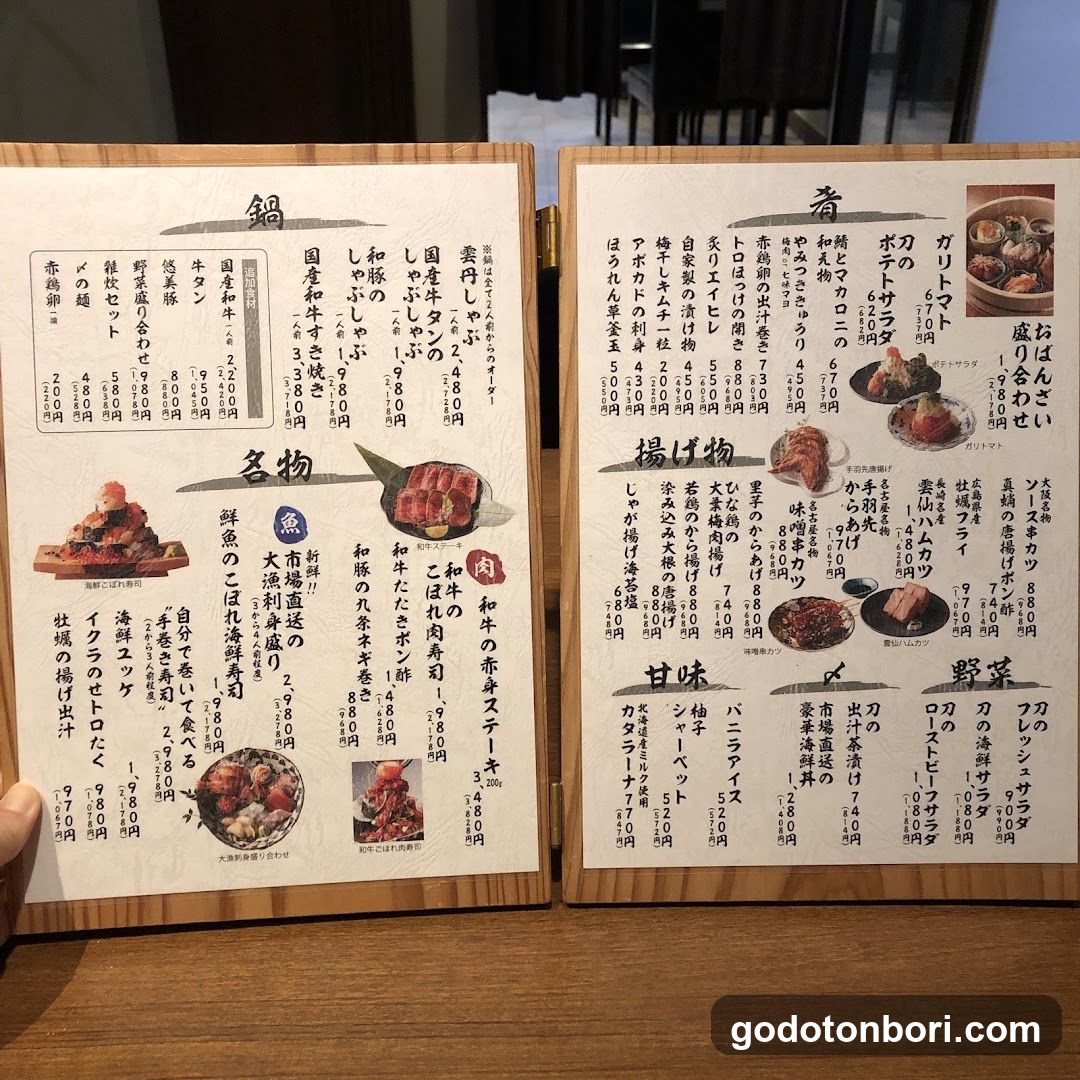 鍋
※鍋は全て2人前からのオーダー
雲丹しゃぶ
一人前 2,480円
(2,728円)
国産牛タンの
しゃぶしゃぶ
一人前 1,980円
(2,178円)
和豚の
しゃぶしゃぶ
一人前 1,980円
(2,178円)
国産和牛すき焼き
一人前 3,380円
(3,718円)
追加食材
国産和牛 一人前 2,200円
(2,420円)
牛タン 950円
(1,045円)
悠美豚 800円
(880円)
野菜盛り合わせ 980円
(1,078円)
雑炊セット 580円
(638円)
〆の麺 480円
(528円)
赤鶏卵 一個 200円
(220円)
名物
和牛ステーキ
肉
和牛の赤身ステーキ 200g 3,480円
(3,828円)
和牛の
こぼれ肉寿司 1,980円
(2,178円)
和牛たたきポン酢 1,480円
(1,628円)
和豚の九条ネギ巻き 880円
(968円)
和牛こぼれ肉寿司
魚
新鮮!!
市場直送の
大漁刺身盛り 2,980円
(3から4人前程度) (3,278円)
鮮魚のこぼれ海鮮寿司 1,980円
(2,178円)
自分で巻いて食べる
"手巻き寿司" 2,980円
(2から3人前程度) (3,278円)
海鮮ユッケ 1,980円
(2,178円)
イクラのせトロたく 980円
(1,078円)
牡蠣の揚げ出汁 970円
(1,067円)
海鮮こぼれ寿司
大漁刺身盛り合わせ
肴
おばんざい
盛り合わせ
1,980円
(2,178円)
ガリトマト 670円
(737円)
刀の
ポテトサラダ 620円
(682円)
鯖とマカロニの
和え物 670円
(737円)
やみつききゅうり 450円
梅肉 or 七味マヨ (495円)
赤鶏卵の出汁巻き 730円
(803円)
トロほっけの開き 880円
(968円)
炙りエイヒレ 550円
(605円)
自家製の漬け物 450円
(495円)
梅干しキムチ一粒 200円
(220円)
アボカドの刺身 430円
(473円)
ほうれん草釜玉 500円
(550円)
ポテトサラダ
ガリトマト
揚げ物
手羽先唐揚げ
大阪名物
ソース串カツ 880円
(968円)
真蛸の唐揚げポン酢 740円
(814円)
広島県産
牡蠣フライ 970円
(1,067円)
長崎名産
雲仙ハムカツ 1,480円
(1,628円)
名古屋名物
手羽先
からあげ 970円
(1,067円)
名古屋名物
味噌串カツ 880円
(968円)
里芋のからあげ 880円
(968円)
ひな鶏の
大葉梅肉揚げ 740円
(814円)
若鶏のから揚げ 880円
(968円)
染み込み大根の唐揚げ 680円
(748円)
じゃが揚げ海苔塩 680円
(748円)
味噌串カツ
雲仙ハムカツ
野菜
刀の
フレッシュサラダ 900円
(990円)
刀の海鮮サラダ 1,080円
(1,188円)
刀の
ローストビーフサラダ 1,080円
(1,188円)
〆
刀の
出汁茶漬け 740円
(814円)
市場直送の
豪華海鮮丼 1,280円
(1,408円)
甘味
バニラアイス 520円
(572円)
柚子
シャーベット 520円
(572円)
北海道産ミルク使用
カタラーナ 770円
(847円)
godotonbori.com